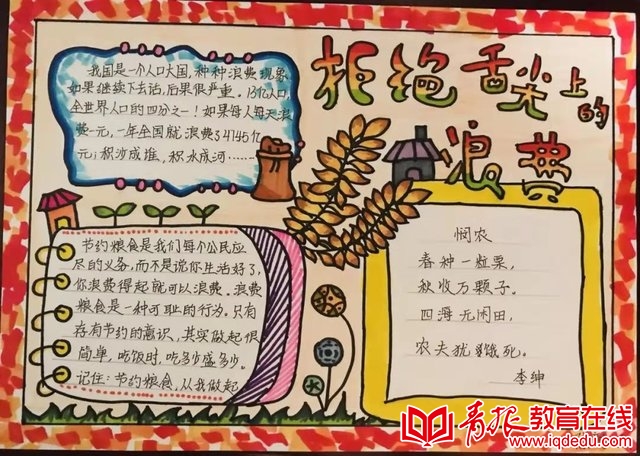 拒绝舌尖上的
浪费
我国是一个人口大国，种种浪费现象
如果继续下去话，后果很严重。13亿人口，
全世界人口的四分之一！如果每人每天浪
费一元，一年全国就浪费34145亿
元；积沙成堆，积水成河……
节约粮食是我们每个公民应
尽的义务，而不是说你生活好了，
你浪费得起就可以浪费。浪费
粮食是一种可耻的行为。只有
存有节约的意识，其实做起很
简单，吃饭时，吃多少盛多少。
记住：节约粮食，从我做起
悯农
春种一粒粟，
秋收万颗子。
四海无闲田，
农夫犹饿死。
李绅
青报教育在线
www.iqdedu.com